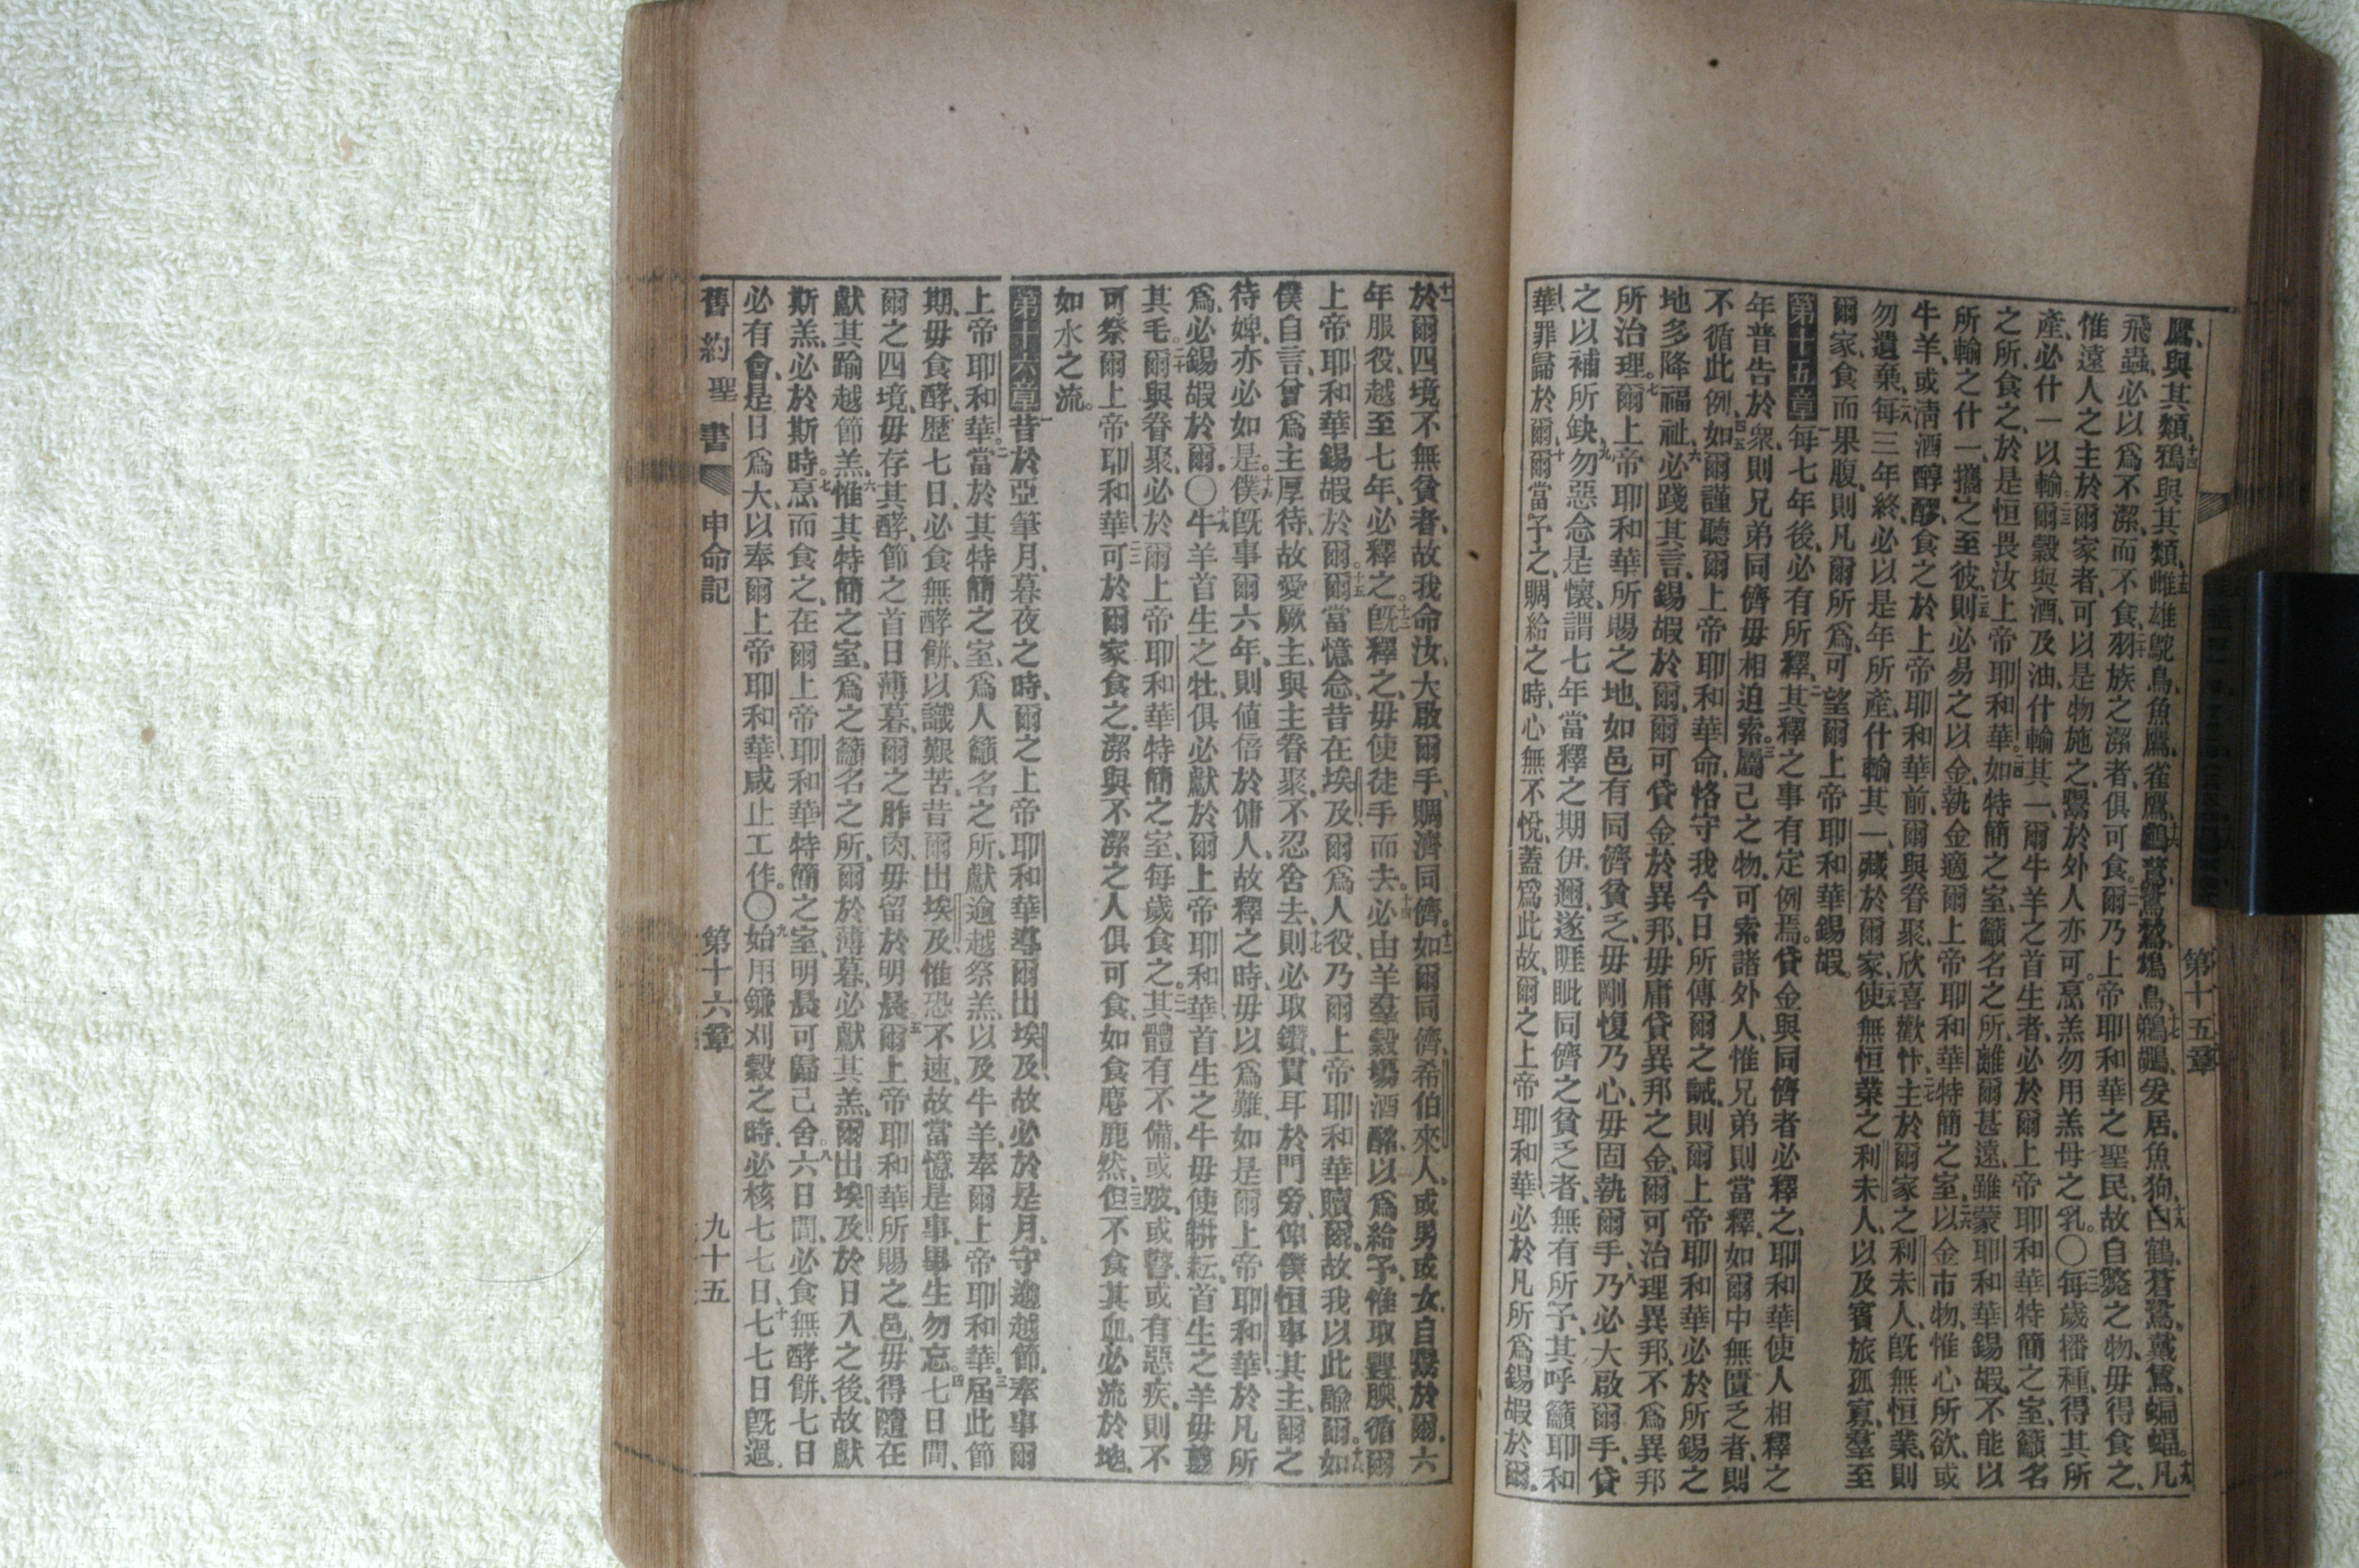 鷹、與其類、十四鴉與其類、十五雌雄鴕鳥、魚鷹、雀鷹、十六鸛、鷺鷥、鵁鳥、十七鵜鶘、爰居、魚狗、十八白鶴、蒼鷺、戴鵀、蝙蝠。十九凡
飛蟲、必以爲不潔、而不食、二十羽族之潔者、俱可食。二一爾乃上帝耶和華之聖民、故自斃之物、毋得食之、
惟遠人之主於爾家者、可以是物施之、鬻於外人亦可。烹羔勿用羔母之乳。〇二二每歲播種、得其所
產、必什一以輸、二三爾穀與酒、及油、什輸其一、爾牛羊之首生者、必於爾上帝耶和華特簡之室、籲名
之所、食之、於是恒畏汝上帝耶和華。二四如特簡之室、籲名之所、離爾甚遠、雖蒙耶和華錫嘏、不能以
所輸之什一、攜之至彼、二五則必易之以金、執金適爾上帝耶和華特簡之室、二六以金市物、惟心所欲、或
牛羊、或清酒醇醪、食之於上帝耶和華前、爾與眷聚、欣喜歡忭、二七主於爾家之利未人、旣無恒業、則
勿遺棄、二八每三年終、必以是年所產、什輸其一、藏於爾家、二九使無恒業之利未人、以及賓旅孤寡、羣至
爾家、食而果腹、則凡爾所爲、可望爾上帝耶和華錫嘏。
第十五章 一每七年後、必有所釋、二其釋之事有定例焉、貸金與同儕者必釋之、耶和華使人相釋之
年普告於衆、則兄弟同儕毋相迫索。三屬己之物、可索諸外人、惟兄弟則當釋、如爾中無匱乏者、則
不循此例、四五如爾謹聽爾上帝耶和華命、恪守我今日所傳爾之誡、則爾上帝耶和華必於所錫之
地多降福祉、六必踐其言、錫嘏於爾、爾可貸金於異邦、毋庸貸異邦之金、爾可治理異邦、不爲異邦
所治理。七爾上帝耶和華所賜之地、如邑有同儕貧乏、毋剛愎乃心、毋固執爾手、八乃必大啟爾手、貸
之以補所缺、九勿惡念是懷、謂七年當釋之期伊邇、遂睚眦同儕之貧乏者、無有所予、其呼籲耶和
華、罪歸於爾、十爾當予之、賙給之時、心無不悅、蓋爲此故、爾之上帝耶和華、必於凡所爲錫嘏於爾、
第十五章
十一於爾四境不無貧者、故我命汝、大啟爾手、賙濟同儕。十二如爾同儕、希伯來人、或男或女、自鬻於爾、六
年服役、越至七年、必釋之。十三旣釋之、毋使徒手而去。十四必由羊羣穀場酒醡、以爲給予、惟取豐腴、循爾
上帝耶和華錫嘏於爾。十五爾當憶念昔在埃及、爾爲人役、乃爾上帝耶和華贖爾、故我以此諭爾。十六如
僕自言、曾爲主厚待、故愛厥主、與主眷聚、不忍舍去、十七則必取鑽貫耳於門旁、仰僕恒事其主、爾之
待婢、亦必如是。十八僕旣事爾六年、則値倍於傭人、故釋之時、毋以爲難、如是爾上帝耶和華、於凡所
爲、必錫嘏於爾。〇十九牛羊首生之牡、俱必獻於爾上帝耶和華、首生之牛毋使耕耘、首生之羊毋翦
其毛。二十爾與眷聚、必於爾上帝耶和華特簡之室、每歲食之。二一其體有不備、或跛、或瞽、或有惡疾、則不
可祭爾上帝耶和華、二二可於爾家食之、潔與不潔之人俱可食、如食麈鹿然、二三但不食其血、必流於地、
如水之流。
第十六章 一昔於亞筆月、暮夜之時、爾之上帝耶和華、導爾出埃及、故必於是月、守逾越節、奉事爾
上帝耶和華。二當於其特簡之室、爲人籲名之所、獻逾越祭羔、以及牛羊、奉爾上帝耶和華。三屆此節
期、毋食酵、歷七日、必食無酵餅、以識艱苦、昔爾出埃及、惟恐不速、故當憶是事、畢生勿忘。四七日間、
爾之四境、毋存其酵、節之首日薄暮、爾之胙肉、毋留於明晨、五爾上帝耶和華所賜之邑、毋得隨在
獻其踰越節羔、六惟其特簡之室、爲之籲名之所、爾於薄暮、必獻其羔、爾出埃及、於日入之後、故獻
斯羔、必於斯時。七烹而食之、在爾上帝耶和華特簡之室、明晨可歸己舍。八六日間、必食無酵餅、七日
必有會、是日爲大、以奉爾上帝耶和華、咸止工作。〇九始用鐮刈穀之時、必核七七日、十七七日旣過、
舊約聖書 申命記 第十六章 九十五